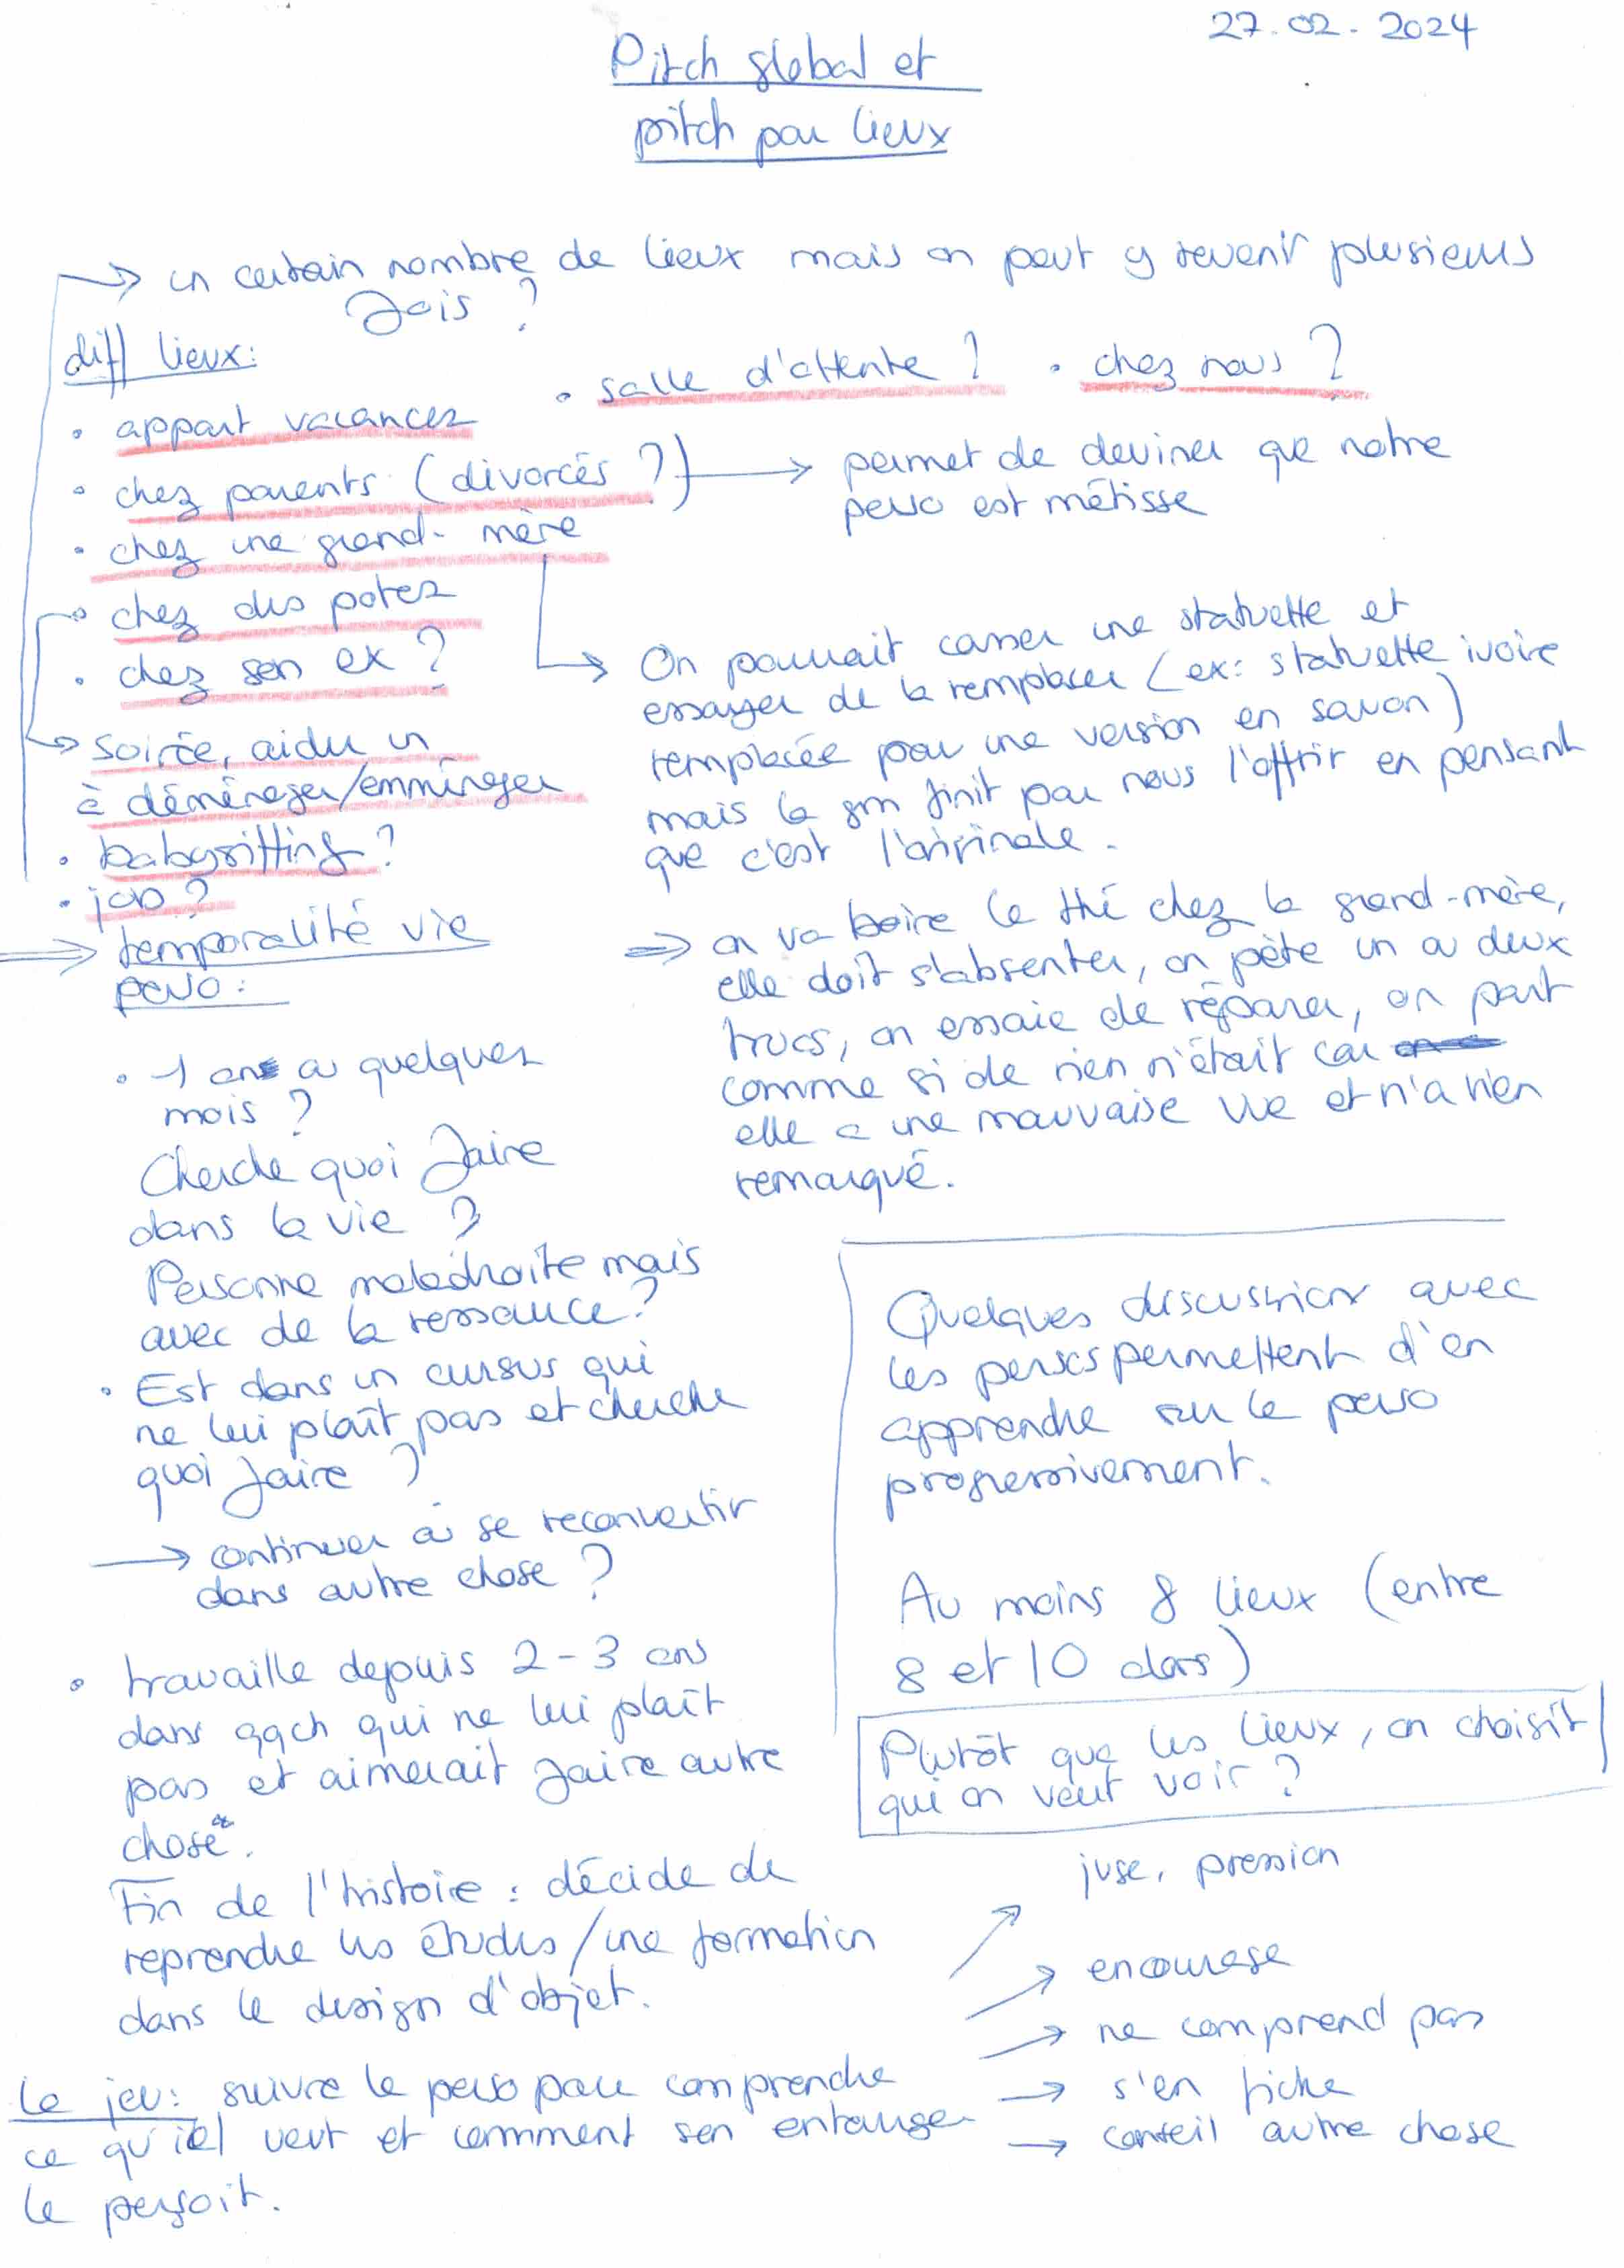 27.02.2024
Pitch global et
pitch par lieux
→ un certain nombre de lieux mais on peut y revenir plusieurs
fois ?
diff lieux:
• salle d'attente ?
• chez nous ?
• appart vacances
• chez parents (divorcés ?) → permet de deviner que notre
perso est métisse
• chez une grand-mère
• chez des potes
• chez son ex ?
→ soirée, aider un
à déménager/emménager
• babysitting ?
• job ?
→ On pourrait casser une statuette et
essayer de la remplacer (ex: statuette ivoire
remplacée par une version en savon)
mais la gm finit par nous l'offrir en pensant
que c'est l'originale.
⇒ on va boire le thé chez la grand-mère,
elle doit s'absenter, on pète un ou deux
trucs, on essaie de réparer, on part
comme si de rien n'était car
elle a une mauvaise vue et n'a rien
remarqué.
⇒ temporalité vie
perso :
• 1 an ou quelques
mois ?
Cherche quoi faire
dans la vie ?
Personne maladroite mais
avec de la ressource ?
• Est dans un cursus qui
ne lui plaît pas et cherche
quoi faire ?
→ continuer ou se reconvertir
dans autre chose ?
• travaille depuis 2-3 ans
dans qqch qui ne lui plaît
pas et aimerait faire autre
chose.
Fin de l'histoire : décide de
reprendre les études/une formation
dans le design d'objet.
Quelques discussions avec
les persos permettent d'en
apprendre sur le perso
progressivement.
Au moins 8 lieux (entre
8 et 10 dors)
Plutôt que les lieux, on choisit
qui on veut voir ?
Le jeu : suivre le perso pour comprendre
ce qu'iel veut et comment son entourage
le perçoit.
↗ juge, pression
→ encourage
→ ne comprend pas
→ s'en fiche
→ conseil autre chose